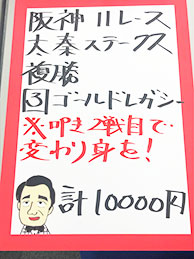 阪神11レース
大秦ステークス
複勝
3 ゴールドレガシー
※叩き2戦目で
変わり身を!
計10000円